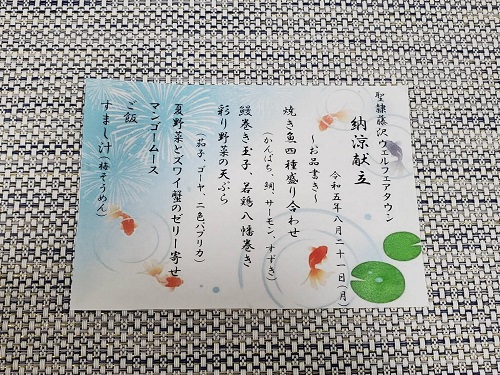 聖隷藤沢ウェルフェアタウン
納涼献立
令和五年八月二十一日(月)
～お品書き～
焼き魚四種盛り合わせ
(かんぱち、鯛、サーモン、すずき)
鰻巻き玉子、若鶏八幡巻き
彩り野菜の天ぷら
(茄子、ゴーヤ、二色パプリカ)
夏野菜とズワイ蟹のゼリー寄せ
マンゴームース
ご飯
すまし汁(梅そうめん)